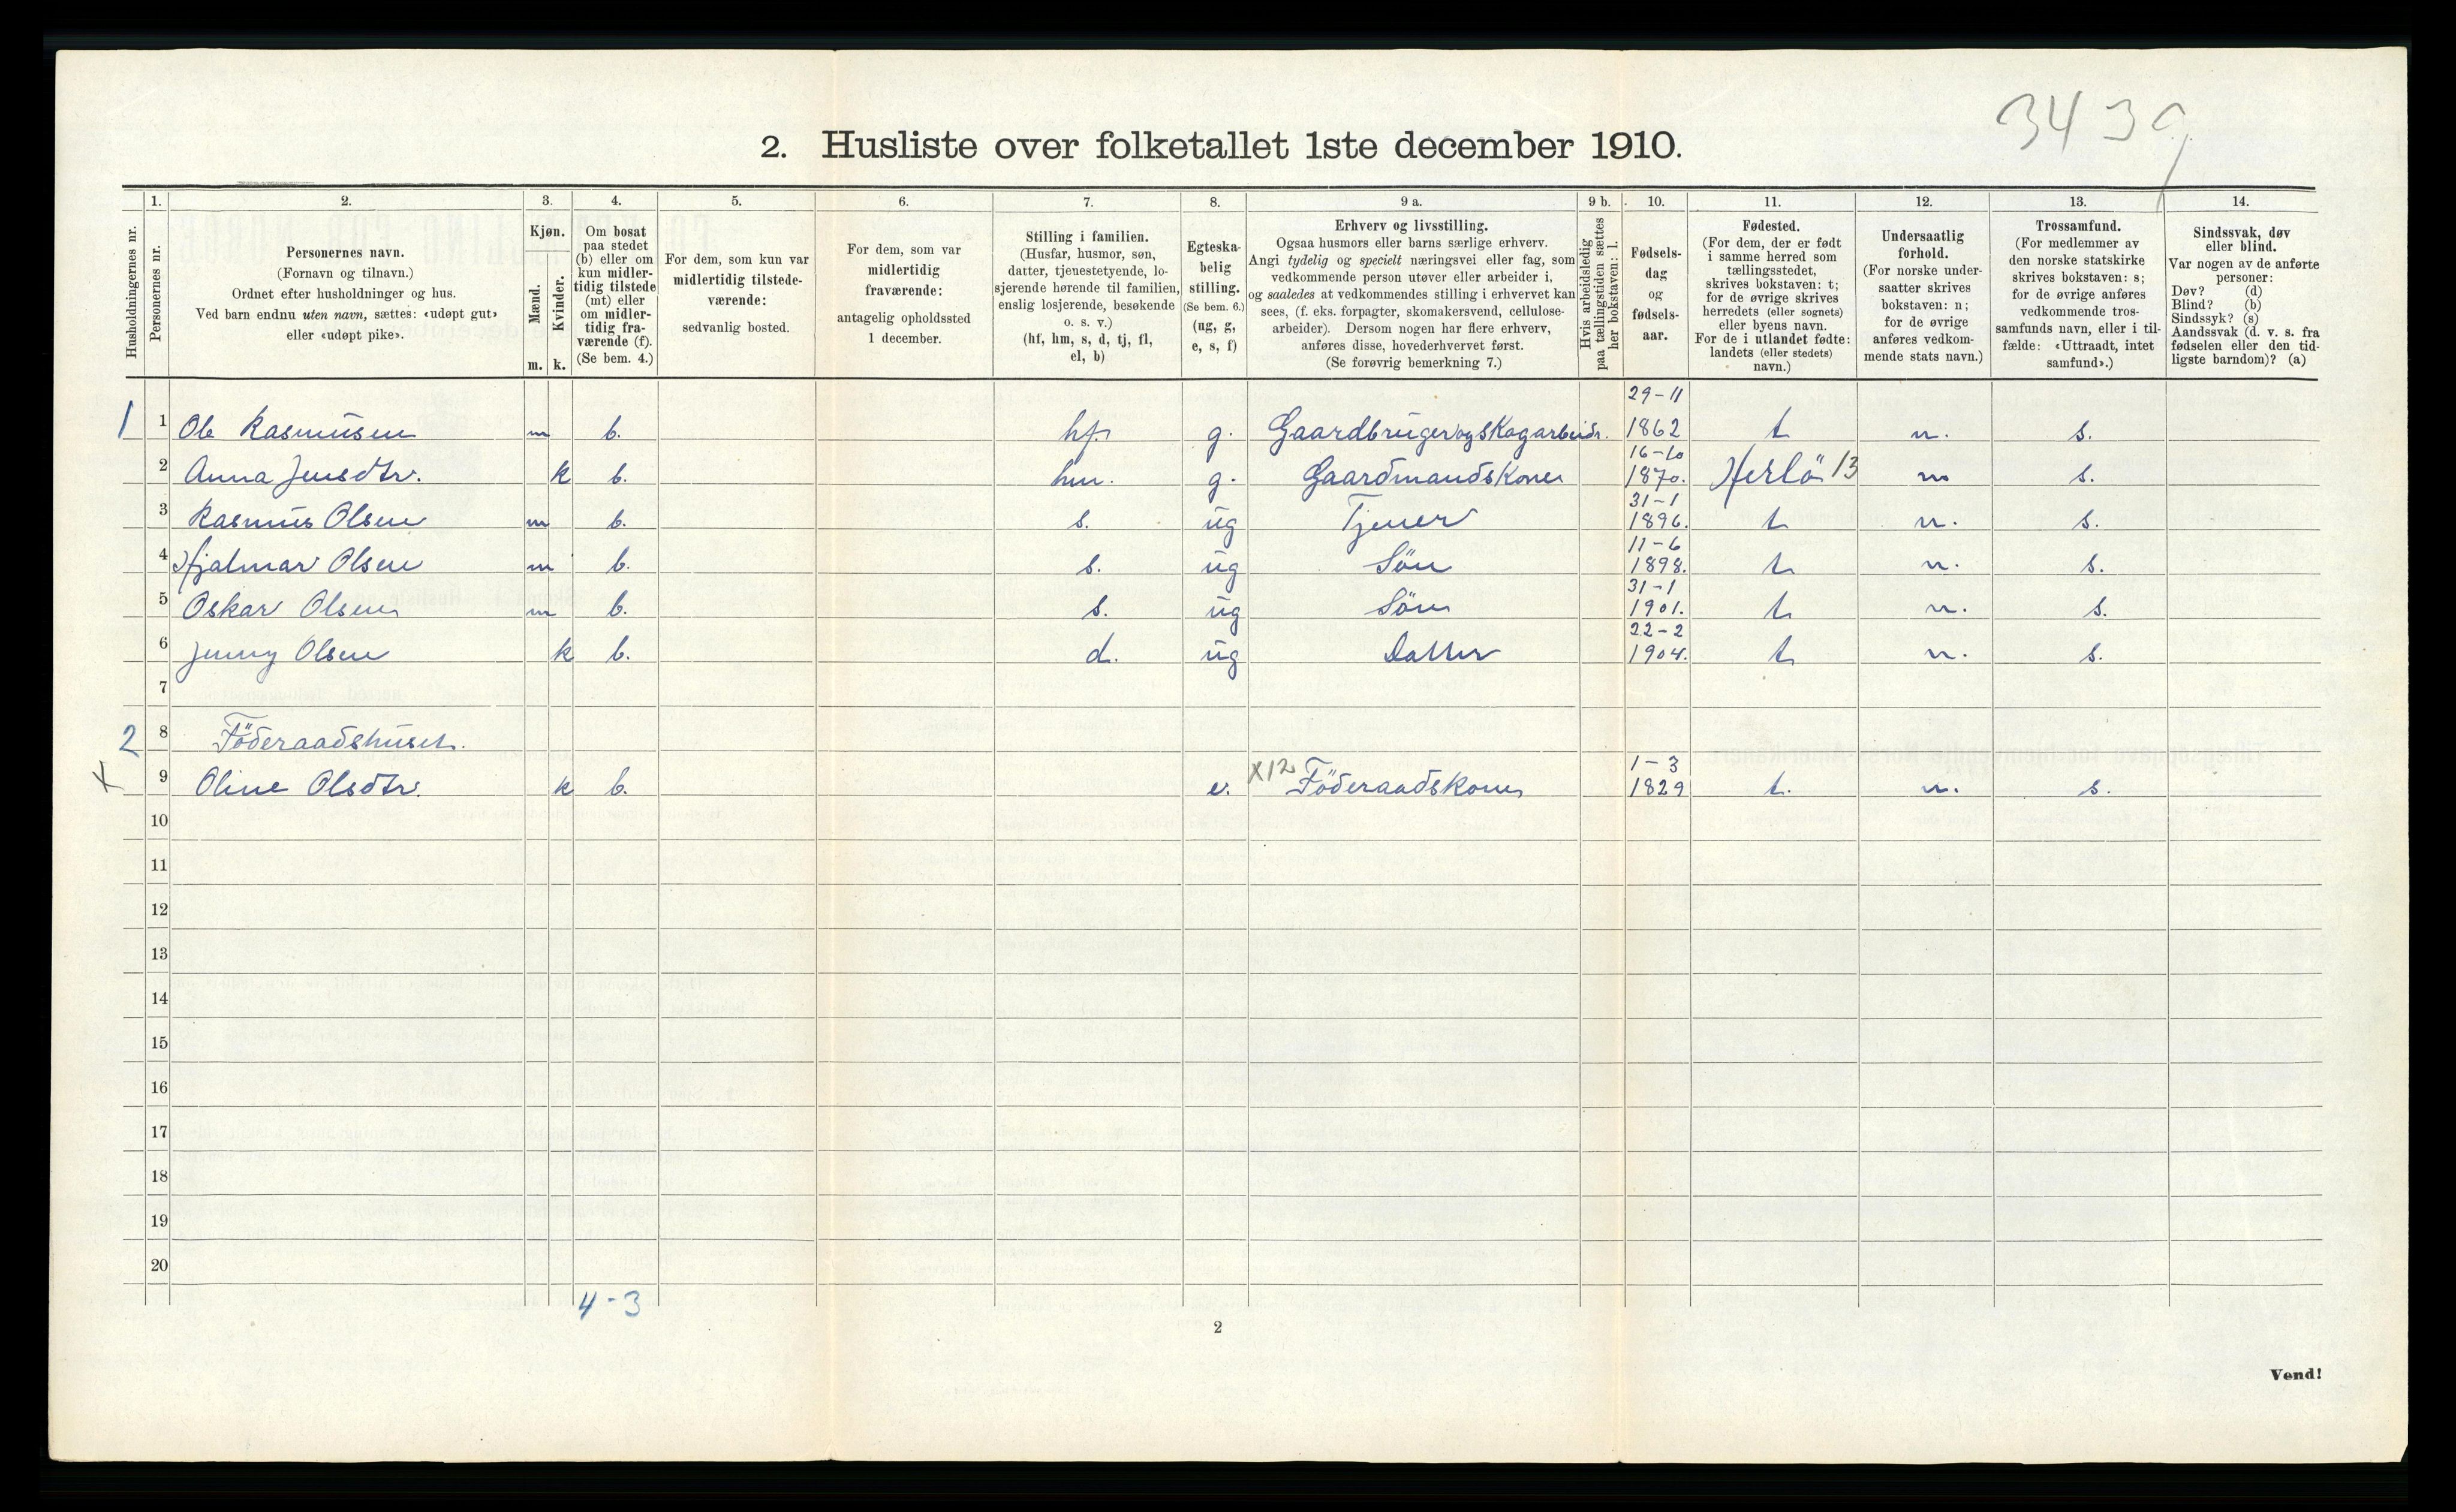 3439
2. Husliste over folketallet 1ste december 1910.
1. 2. 3. 4. 5. 6. 7. 8. 9 a. 9 b. 10. 11. 12. 13. 14.
Husholdningernes nr.
Personernes nr.
Personernes navn.
(Fornavn og tilnavn.)
Ordnet efter husholdninger og hus.
Ved barn endnu uten navn, sættes: «udøpt gut»
eller «udøpt pike».
Kjøn.
Mænd.
Kvinder.
m. k.
Om bosat
paa stedet
(b) eller om
kun midler-
tidig tilstede
(mt) eller
om midler-
tidig fra-
værende (f).
(Se bem. 4.)
For dem, som kun var
midlertidig tilstede-
værende:
sedvanlig bosted.
For dem, som var
midlertidig
fraværende:
antagelig opholdssted
1 december.
Stilling i familien.
(Husfar, husmor, søn,
datter, tjenestetyende, lo-
sjerende hørende til familien,
enslig losjerende, besøkende
o. s. v.)
(hf, hm, s, d, tj, fl,
el, b)
Egteska-
belig
stilling.
(Se bem. 6.)
(ug, g,
e, s, f)
Erhverv og livsstilling.
Ogsaa husmors eller barns særlige erhverv.
Angi tydelig og specielt næringsvei eller fag, som
vedkommende person utøver eller arbeider i,
og saaledes at vedkommendes stilling i erhvervet kan
sees, (f. eks. forpagter, skomakersvend, cellulose-
arbeider). Dersom nogen har flere erhverv,
anføres disse, hovederhvervet først.
(Se forøvrig bemerkning 7.)
Hvis arbeidsledig
paa tællingstiden sættes
her bokstaven: l.
Fødsels-
dag
og
fødsels-
aar.
Fødested.
(For dem, der er født
i samme herred som
tællingsstedet,
skrives bokstaven: t;
for de øvrige skrives
herredets (eller sognets)
eller byens navn.
For de i utlandet fødte:
landets (eller stedets)
navn.)
Undersaatlig
forhold.
(For norske under-
saatter skrives
bokstaven: n;
for de øvrige
anføres vedkom-
mende stats navn.)
Trossamfund.
(For medlemmer av
den norske statskirke
skrives bokstaven: s;
for de øvrige anføres
vedkommende tros-
samfunds navn, eller i til-
fælde: «Uttraadt, intet
samfund».)
Sindssvak, døv
eller blind.
Var nogen av de anførte
personer:
Døv? (d)
Blind? (b)
Sindssyk? (s)
Aandssvak (d. v. s. fra
fødselen eller den tid-
ligste barndom)? (a)
29-11
1 1 Ole Rasmusen m b. hf. g. Gaardbruger og Skogarbeidr. 1862 t n. s.
16-10
2 Anna Jensdtr. k b. hm. g. Gaardmandskone 1870. Herlö 13 n s.
31-1
3 Rasmus Olsen m b. s. ug Tjener 1896. t n. s.
11-6
4 Hjalmar Olsen m b. s. ug Sön 1898. t n. s.
31-1
5 Oskar Olsen m b. s. ug Sön 1901. t n. s.
22-2
6 Jenny Olsen k b. d. ug Datter 1904. t n. s.
7
2 8 Föderaadshuset.
1-3
X 9 Oline Olsdtr. k b. e. X12 Föderaadskone 1829 t. n. s.
10
11
12
13
14
15
16
17
18
19
20
4-3
2
Vend!